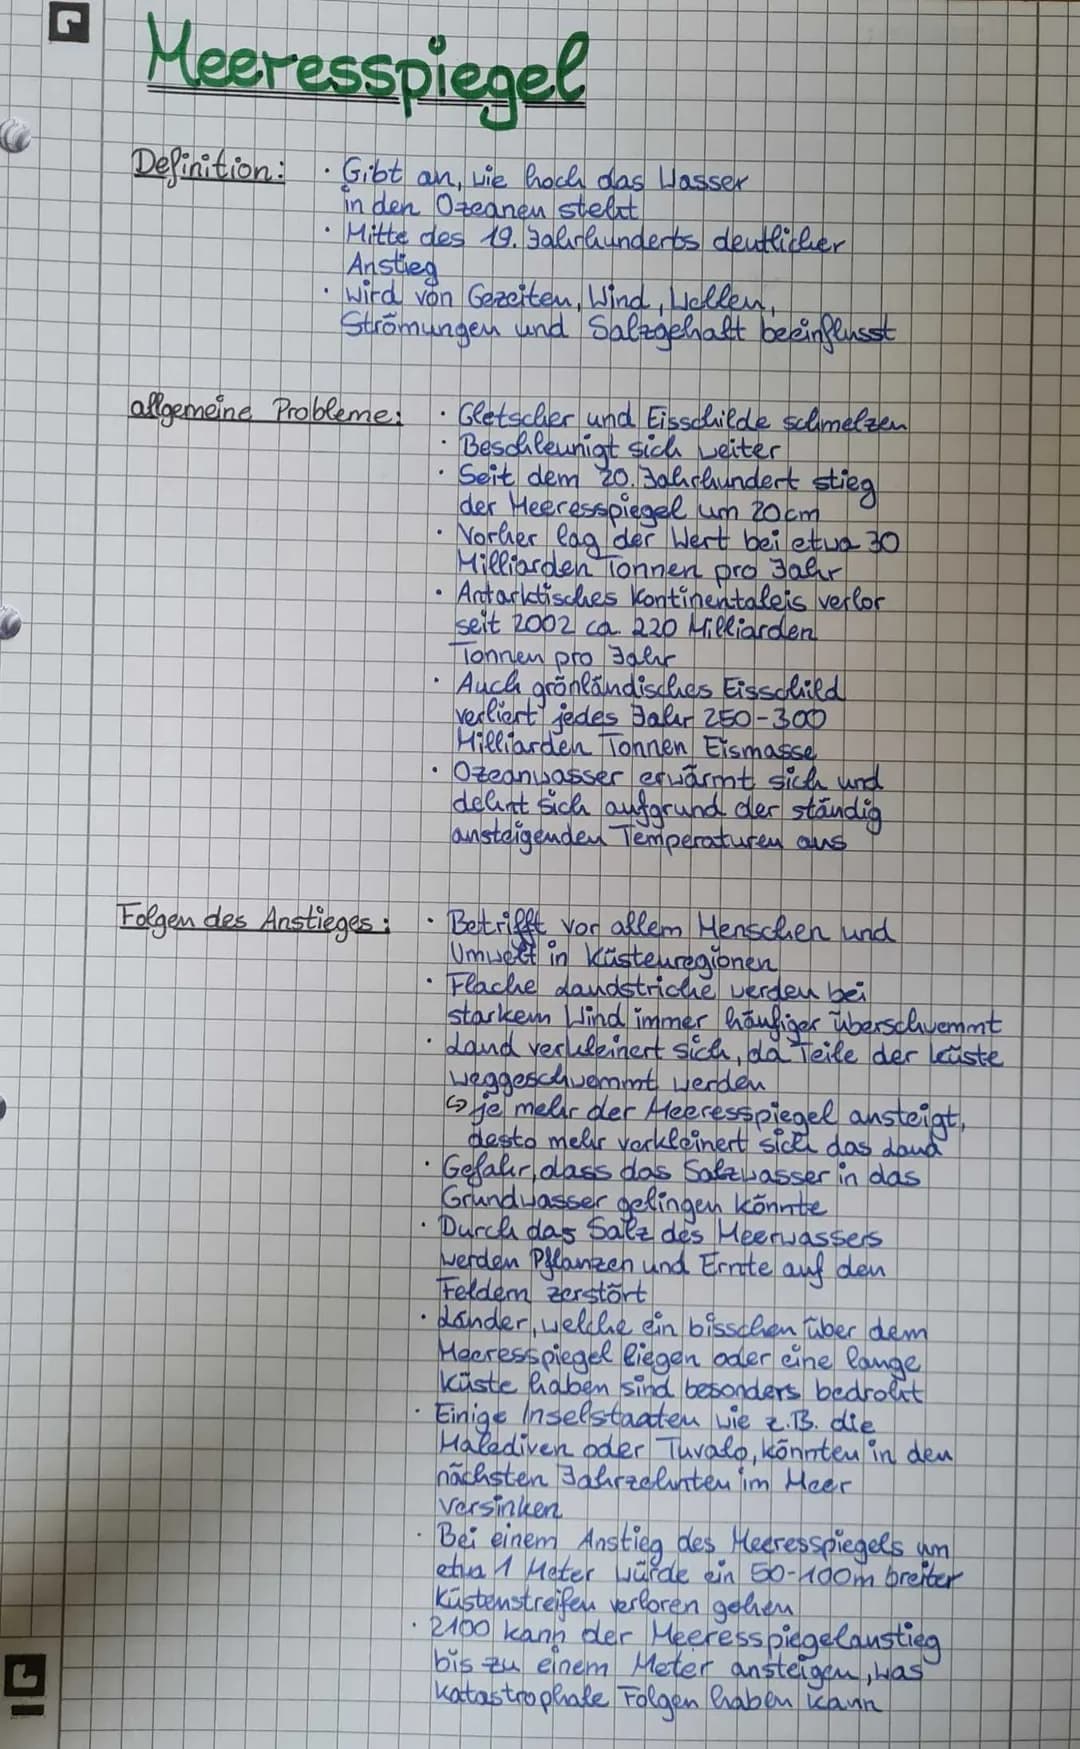 Meeresspiegel
Definition: · Gibt an, wie hoch das Wasser
in den Ozeanen steht
· Mitte des 19. Jahrhunderts deutlicher
Anstieg
· wird von Gezeiten, Wind, Wellen,
Strömungen und Salzgehalt beeinflusst
allgemeine Probleme: · Gletscher und Eisschilde schmelzen
· Beschleunigt sich weiter
· Seit dem 20. Jahrhundert stieg
der Meeresspiegel um 20cm
· Vorher lag der Wert bei etwa 30
Milliarden Tonnen pro Jahr
· Antarktisches Kontinentaleis verlor
seit 2002 ca. 220 Milliarden
Tonnen pro Jahr
· Auch grönländisches Eisschild
verliert jedes Jahr 250-300
Milliarden Tonnen Eismasse
· Ozeanwasser erwärmt sich und
dehnt sich aufgrund der ständig
ansteigenden Temperaturen aus
Folgen des Anstieges: · Betrifft vor allem Menschen und
Umwelt in Küstenregionen
· Flache Landstriche werden bei
starkem Wind immer häufiger überschwemmt
· Land verkleinert sich, da Teile der Küste
weggeschwemmt werden
↪ je mehr der Meeresspiegel ansteigt,
desto mehr verkleinert sich das Land
· Gefahr, dass das Salzwasser in das
Grundwasser gelingen könnte
· Durch das Salz des Meerwassers
werden Pflanzen und Ernte auf den
Feldern zerstört
· Länder, welche ein bisschen über dem
Meeresspiegel liegen oder eine lange
Küste haben sind besonders bedroht
· Einige Inselstaaten wie z.B. die
Malediven oder Tuvalo, könnten in den
nächsten Jahrzehnten im Meer
versinken
· Bei einem Anstieg des Meeresspiegels um
etwa 1 Meter würde ein 50-100m breiter
Küstenstreifen verloren gehen
· 2100 kann der Meeresspiegelanstieg
bis zu einem Meter ansteigen, was
katastrophale Folgen haben kann